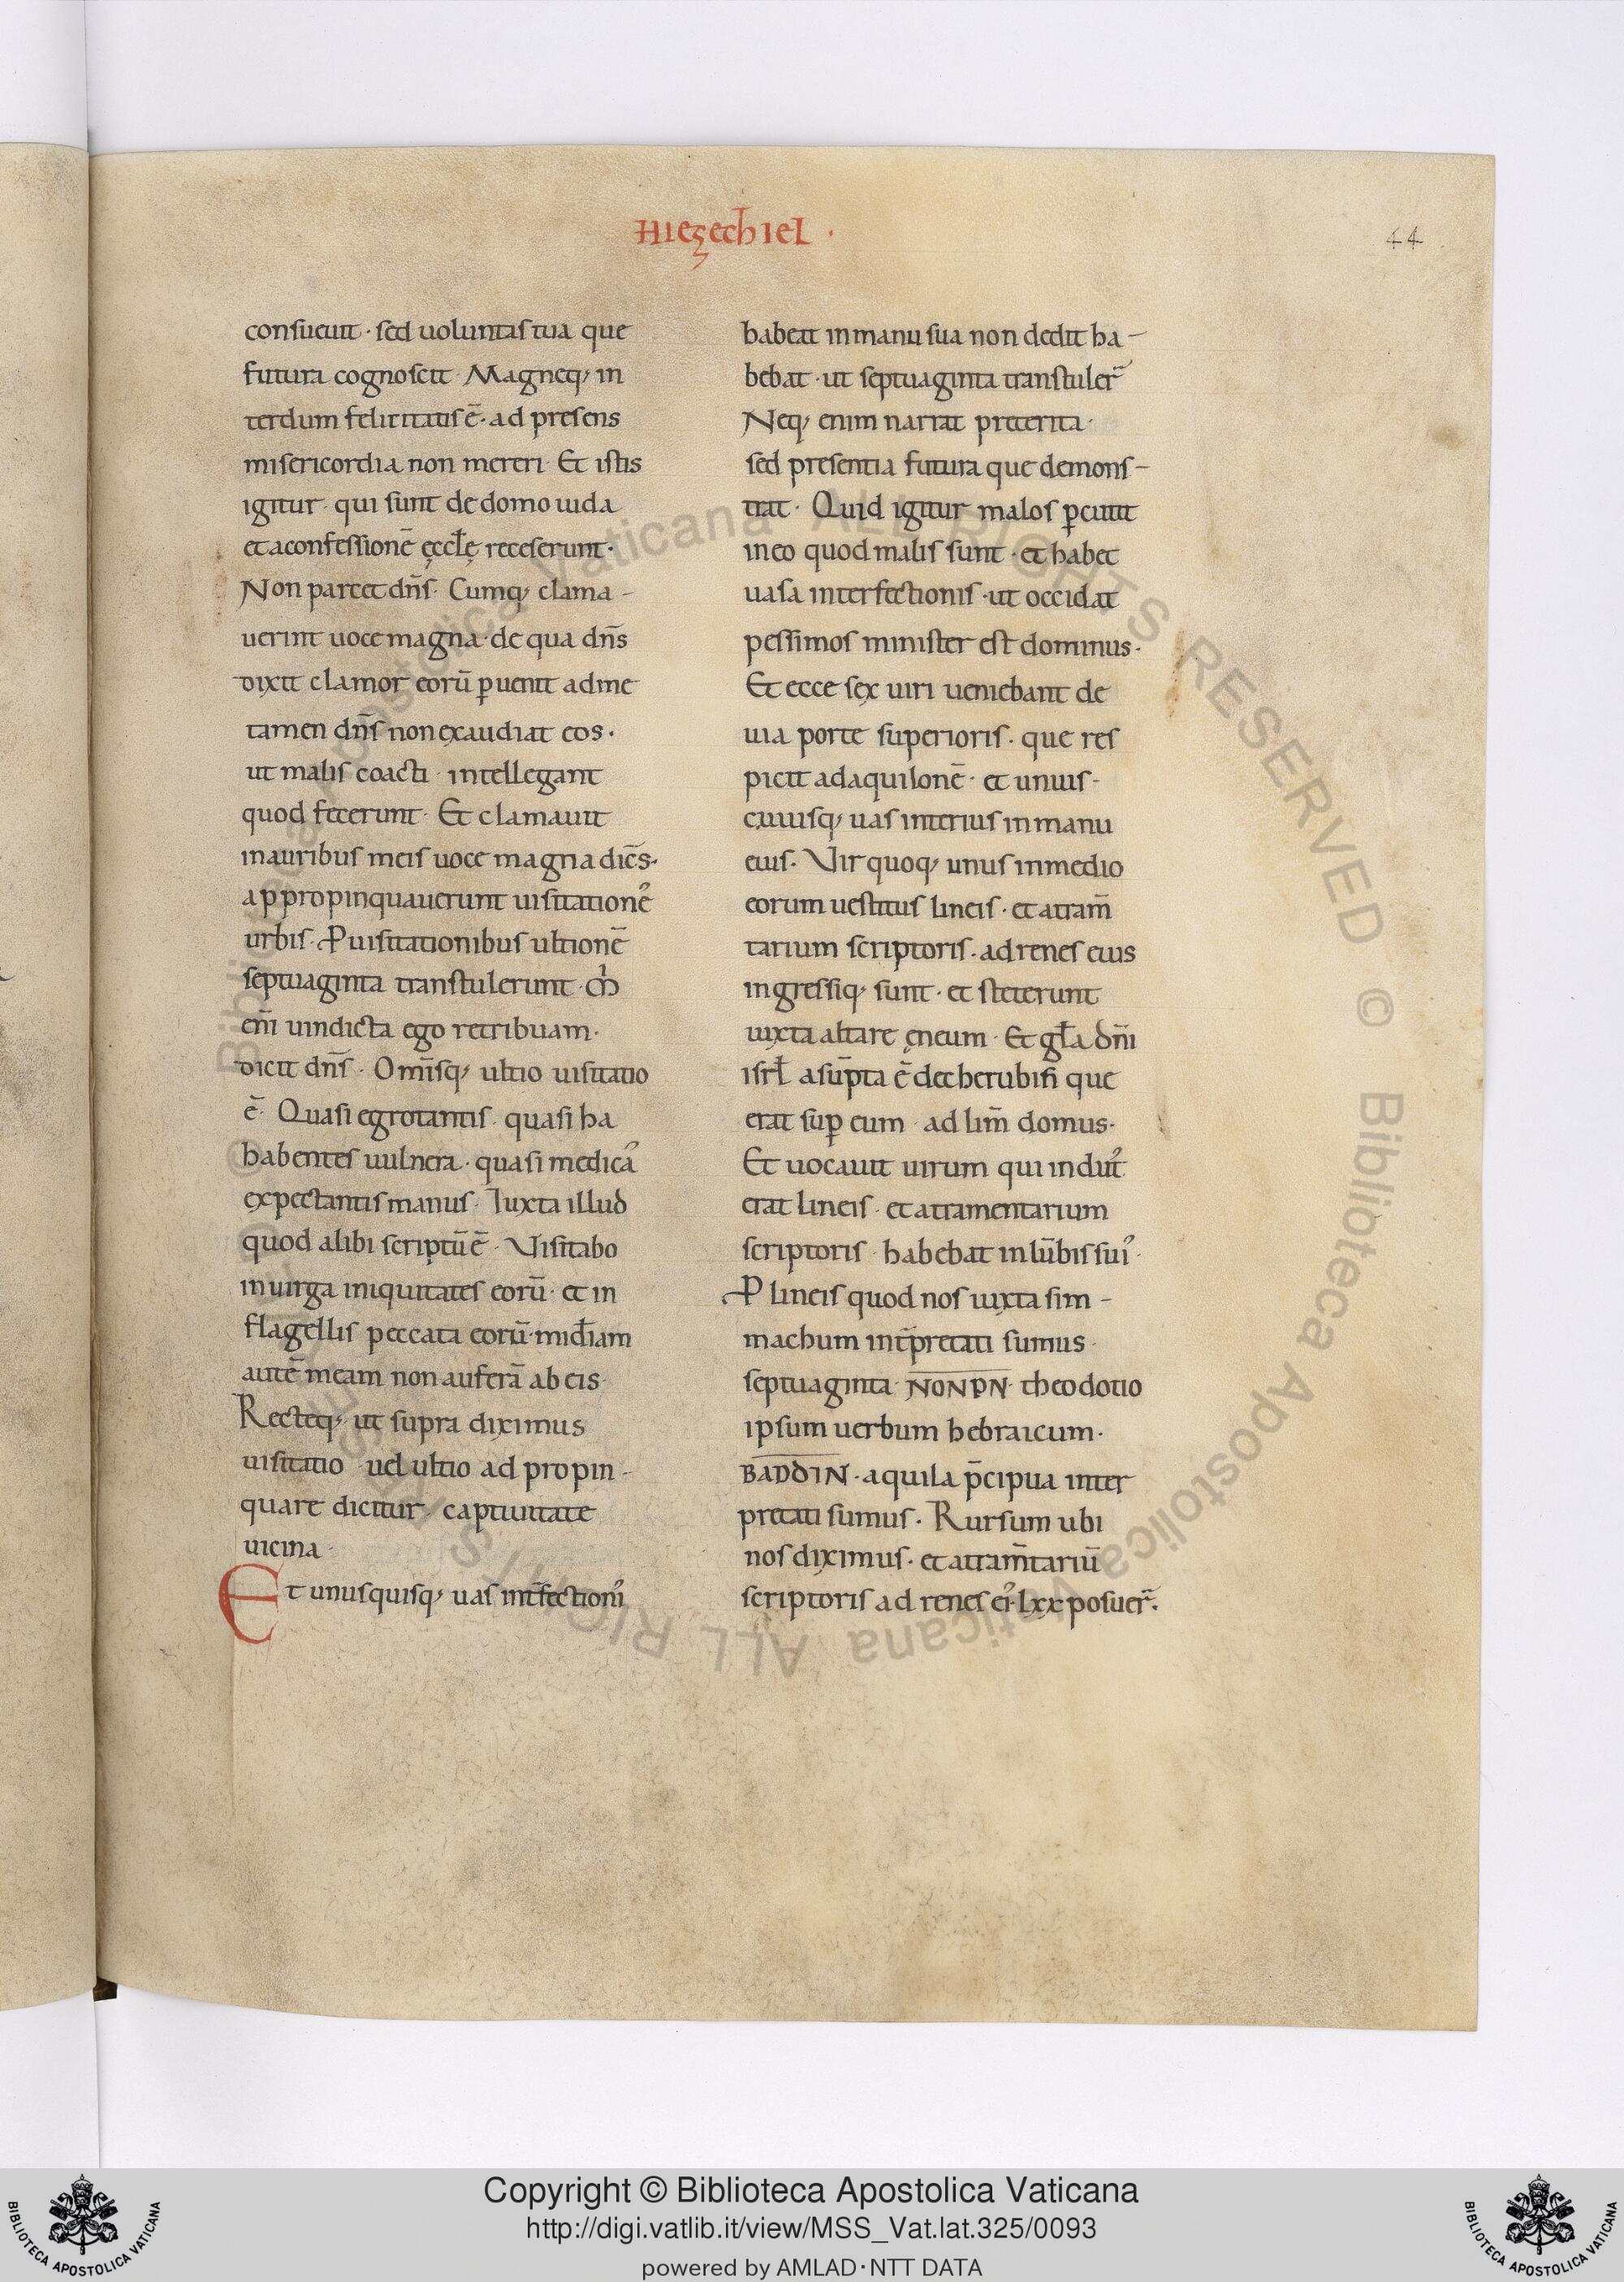 Hiezechiel ·
44
consueuit · sed uoluntas tua que
futura cognoscit · Magneq; in
terdum felicitatis ē · ad presens
misericordia non mereri · Et istis
igitur · qui sunt de domo iuda
et aconfessionē ęccłę receserunt ·
Non parcet dn̄s · Cumq; clama -
uerint uoce magna · de qua dn̄s
dixit clamor eorū ꝑuenit adme
tamen dn̄s non exaudiat eos ·
ut malis coacti · intellegant
quod fecerunt · Et clamauit
inauribus meis uoce magna dicēs ·
appropinquauerunt uisitationeˀ
urbis · P uisitationibus ultionē
septuaginta transtulerunt ·
em̄ uindicta ego retribuam ·
dicit dn̄s · Omīsq; ultio uisitatio
ē · Quasi egrotantis · quasi ha
habentes uulnera · quasi medicaˀ
expectantis manus · Iuxta illud
quod alibi scriptū ē · Visitabo
inuirga iniquitates eorū · et in
flagellis peccata eorū · miđiam
autē meam non auferā ab eis ·
Recteq; ut supra diximus
uisitatio uel ultio adpropin -
quare dicitur · captiuitate
uicina ·
Et unusquisq; uas int̄fectioniˀ
habeat inmanu sua non dedit ha -
bebat · ut septuaginta transtuler̄
Neq; enim narrat preterita ·
sed presentia futura que demons -
trat · Quid igitur malos ꝑcutit
ineo quod malis sunt · et habet
uasa interfectionis · ut occidat
pessimos minister est dominus ·
Et ecce sex uiri ueniebant de
uia porte superioris · que res
picit adaquilonē · et unuis -
cuiusq; uas interius inmanu
eius · Vir quoq; unus inmedio
eorum uestitus lineis · et atram̄
tarium scriptoris · adrenes eius
ingressiq; sunt · et steterunt
iuxta altare ęneum · Et gła dn̄i
isrł asūpta ē decherubin que
erat suꝑ eum · ad lim̄ domus ·
Et uocauit uirum qui indutˀ
erat lineis · et atramentarium
scriptoris · habebat inlūbis suiˀ ·
P lineis quod nos iuxta sim -
machum int̄pretati sumus ·
septuaginta · NONPN · theodotio
ipsum uerbum hebraicum ·
BADDIN · aquila p̄cipua inter
pretati sumus · Rursum ubi
nos diximus · et atram̄tariū
scriptoris ad renes eiˀ · lxx posuer̄ ·
© Biblioteca Apostolica Vaticana ALL RIGHTS RESERVED © Biblioteca Apostolica Vaticana ALL RIGHTS
Copyright © Biblioteca Apostolica Vaticana
http://digi.vatlib.it/view/MSS_Vat.lat.325/0093
powered by AMLAD·NTT DATA
BIBLIOTECA APOSTOLICA VATICANA
BIBLIOTECA APOSTOLICA VATICANA